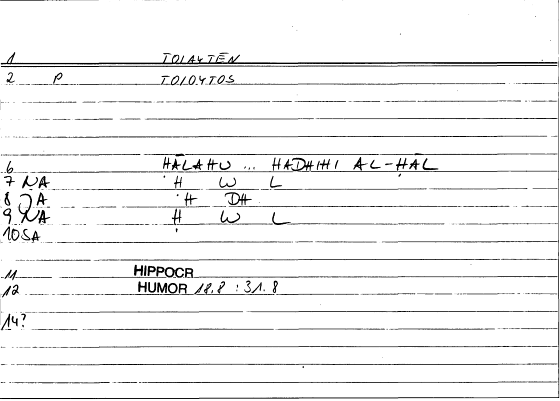 1 TOIAYTEN
2 P TOIOYTOS
6 ḤĀLAHU ... HADHIHI AL-ḤĀL
7 NA Ḥ W L
8 QA H DH
9 NA Ḥ W L
10 SA
11 HIPPOCR
12 HUMOR 18.8 : 31.8
14?